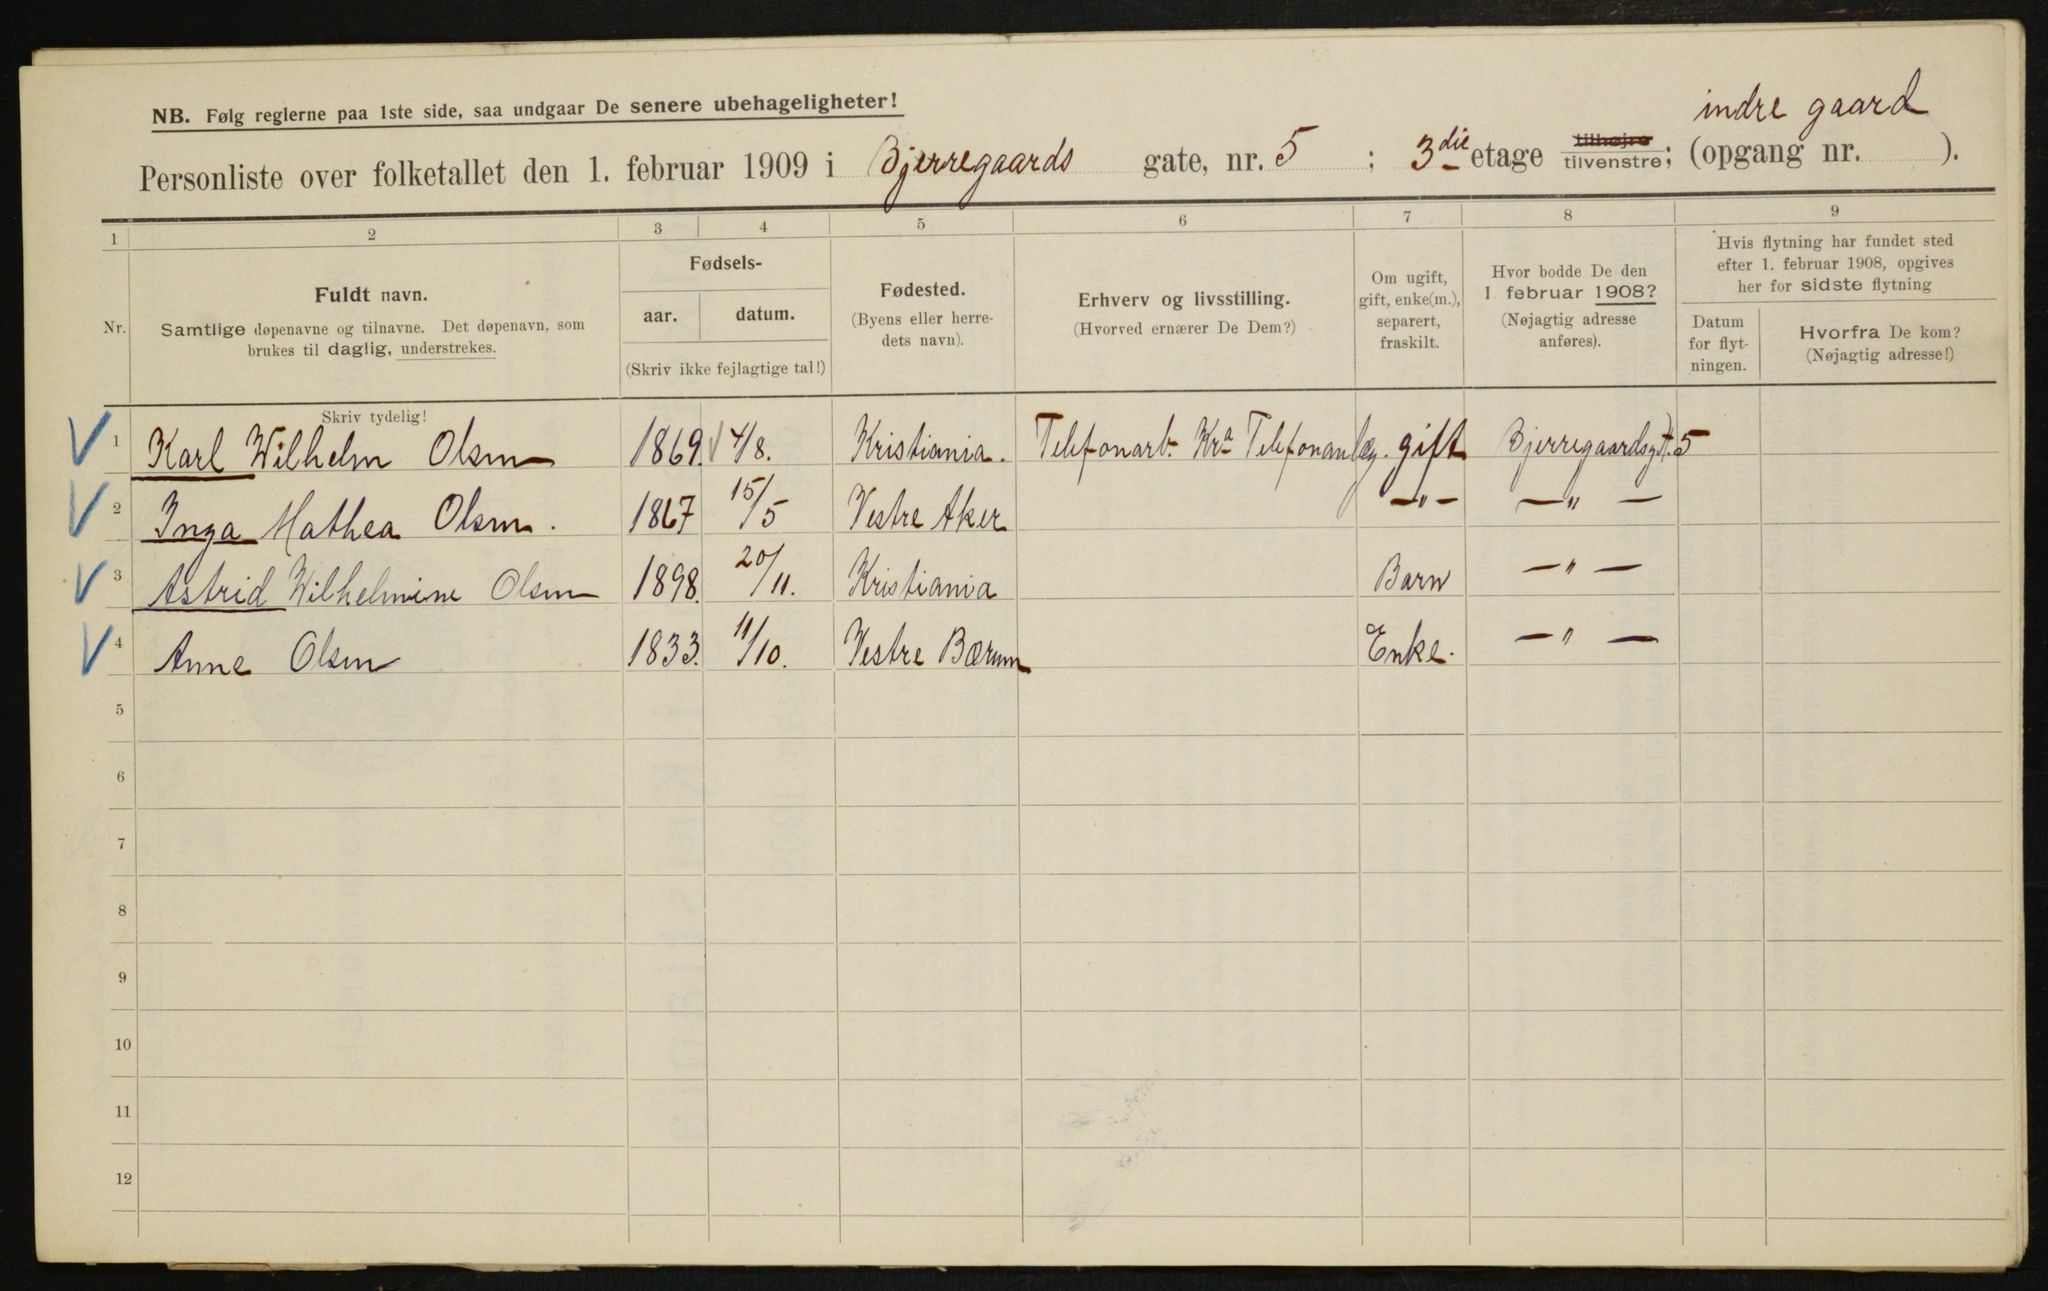 indre gaard
NB. Følg reglerne paa 1ste side, saa undgaar De senere ubehageligheter!
Personliste over folketallet den 1. februar 1909 i Bjerregaards gate, nr. 5 ; 3die etage tilhøjre tilvenstre; (opgang nr. ).
1 2 3 4 5 6 7 8 9
Nr.
Fuldt navn.
Samtlige døpenavne og tilnavne. Det døpenavn, som
brukes til daglig, understrekes.
Fødsels-
aar. datum.
(Skriv ikke fejlagtige tal!)
Fødested.
(Byens eller herre-
dets navn).
Erhverv og livsstilling.
(Hvorved ernærer De Dem?)
Om ugift,
gift, enke(m.),
separert,
fraskilt.
Hvor bodde De den
1 februar 1908?
(Nøjagtig adresse
anføres).
Hvis flytning har fundet sted
efter 1. februar 1908, opgives
her for sidste flytning
Datum
for flyt-
ningen.
Hvorfra De kom?
(Nøjagtig adresse!)
Skriv tydelig!
1 Karl Wilhelm Olsen 1869. 4/8. Kristiania. Telefonarb. Kra Telefonanlæg. gift Bjerregaardsgt. 5
2 Inga Mathea Olsen. 1867 15/5 Vestre Aker —"— —"—
3 Astrid Wilhelmine Olsen 1898. 20/11. Kristiania Barn —"—
4 Anne Olsen 1833. 11/10. Vestre Bærum Enke. —"—
5
6
7
8
9
10
11
12